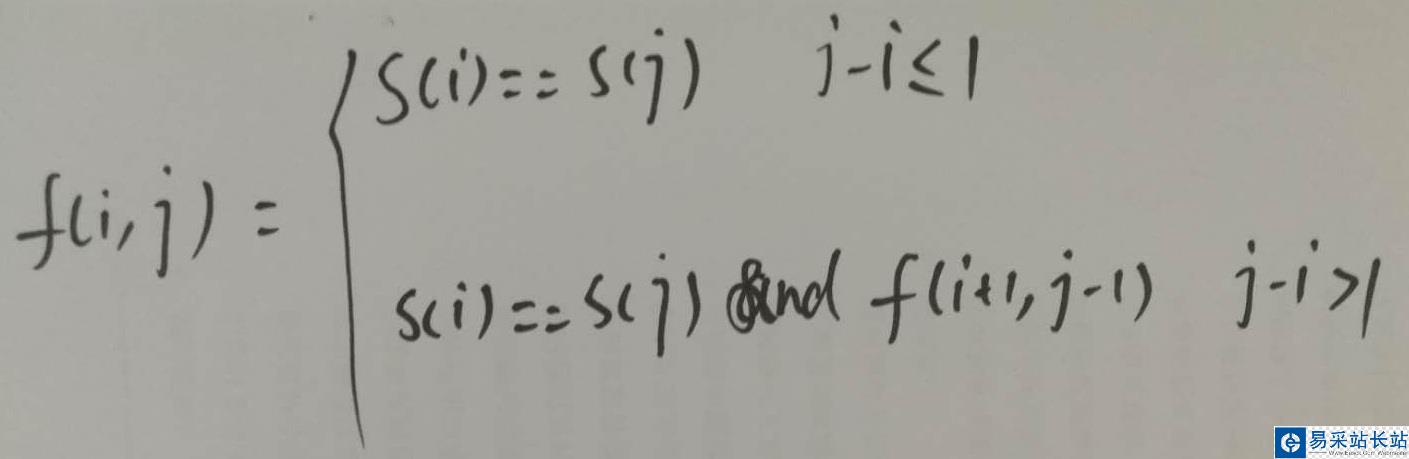 S(i)==S(j) j-i≤1
f(i,j)=
S(i)==S(j) and f(i+1,j-1) j-i>1
易采站长站